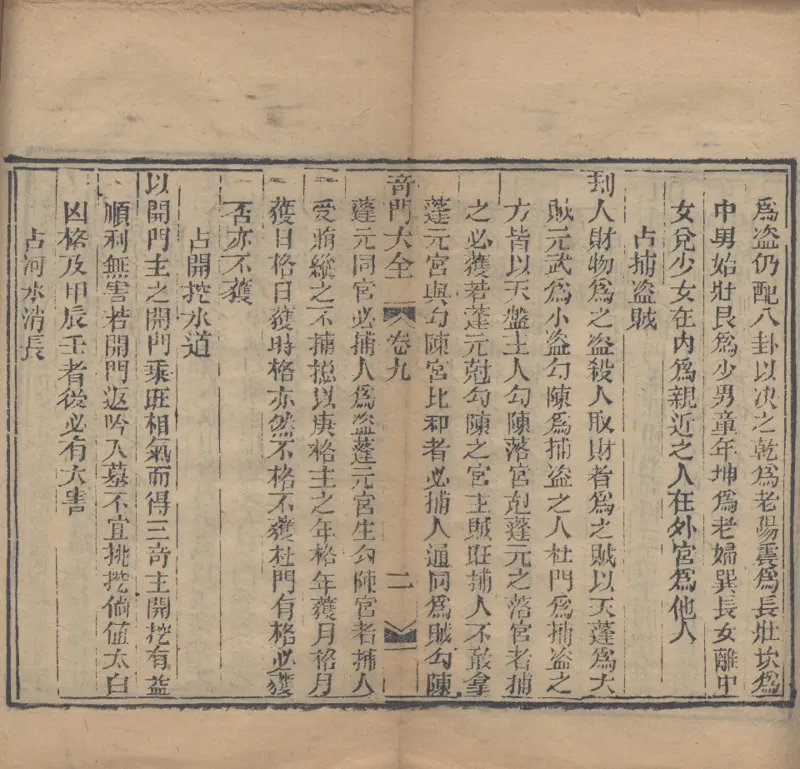 為盗仍配八卦以决之乾為老陽震為長壯坎為
中男始壯艮為少男童年坤為老婦巽長女離中
女兌少女在内為親近之人在外宫為他人
占捕盗賊
刦人財物為之盗殺人取財者為之賊以天蓬為大
賊元武為小盗勾陳為捕盗之人杜門為捕盗之
方皆以天盤主人勾陳落宫剋蓬元之落宫者捕
之必獲若蓬元尅勾陳之宫主賊旺捕人不敢拿
蓬元宫與勾陳宫比和者必捕人通同為賊勾陳
奇門大全 卷九 二
蓬元同宫必捕人為盗蓬元宫生勾陳宫者捕人
受賄縱之不捕摠以庚格主之年格年獲月格月
獲日格日獲時格亦然不格不獲杜門有格必獲
否亦不獲
占開挖水道
以開門主之開門乘旺相氣而得三奇主開挖有益
順利無害若開門返吟入墓不宜挑挖倘值太白
凶格及甲辰壬者後必有大害
占河水消長